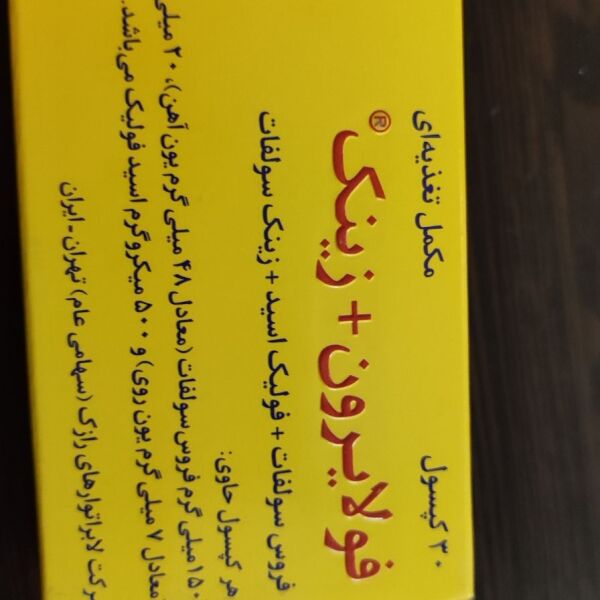 ۳۰ کپسول مکمل تغذیه‌ای
فولایرون + زینک®
فروس سولفات + فولیک اسید + زینک سولفات
هر کپسول حاوی:
۱۵۰ میلی گرم فروس سولفات (معادل ۴۸ میلی گرم یون آهن)، ۲۰ میلی
معادل ۷ میلی گرم یون روی) و ۵۰۰ میکروگرم اسید فولیک می‌باشد.
لابراتوارهای رازک (سهامی عام) تهران - ایران